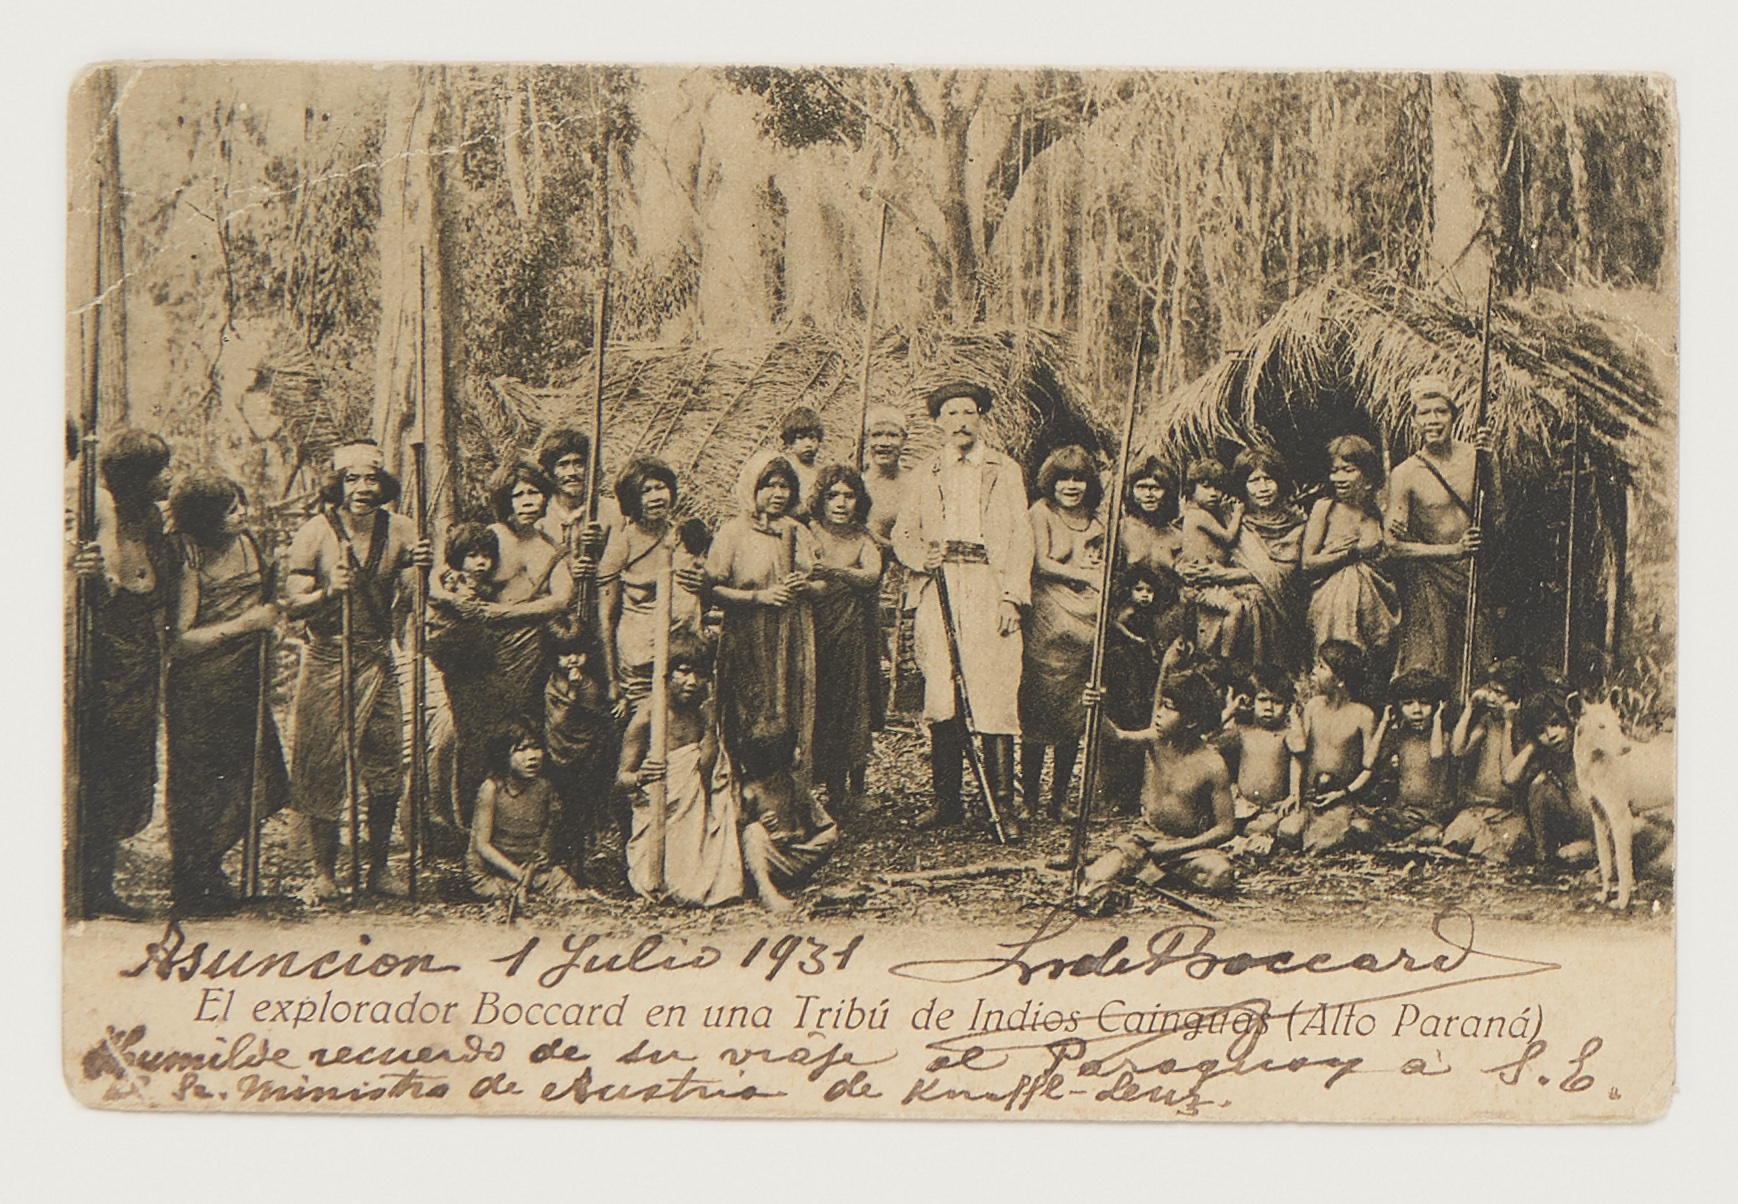 Asuncion 1 Julio 1931 de Boccard
El explorador Boccard en una Tribú de Indios Cainguas (Alto Paraná)
Humilde recuerdo de su viaje al Paraguay à S. E.
Sr. Ministro de Austria de Kneffl-Lenz.